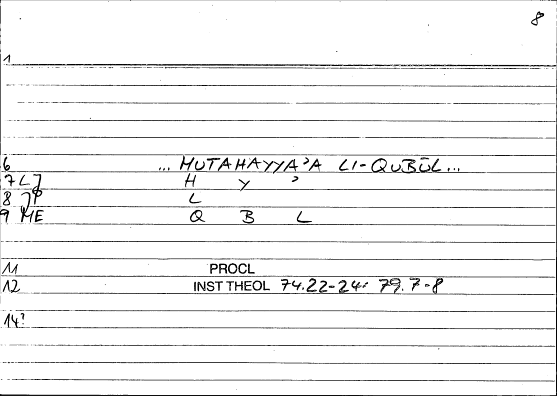 8
1
6 ... MUTAHAYYA'A LI-QUBŪL...
7 LJ H Y '
8 JP L
9 ME Q B L
11 PROCL
12 INST THEOL 74.22-24; 79.7-8
14?